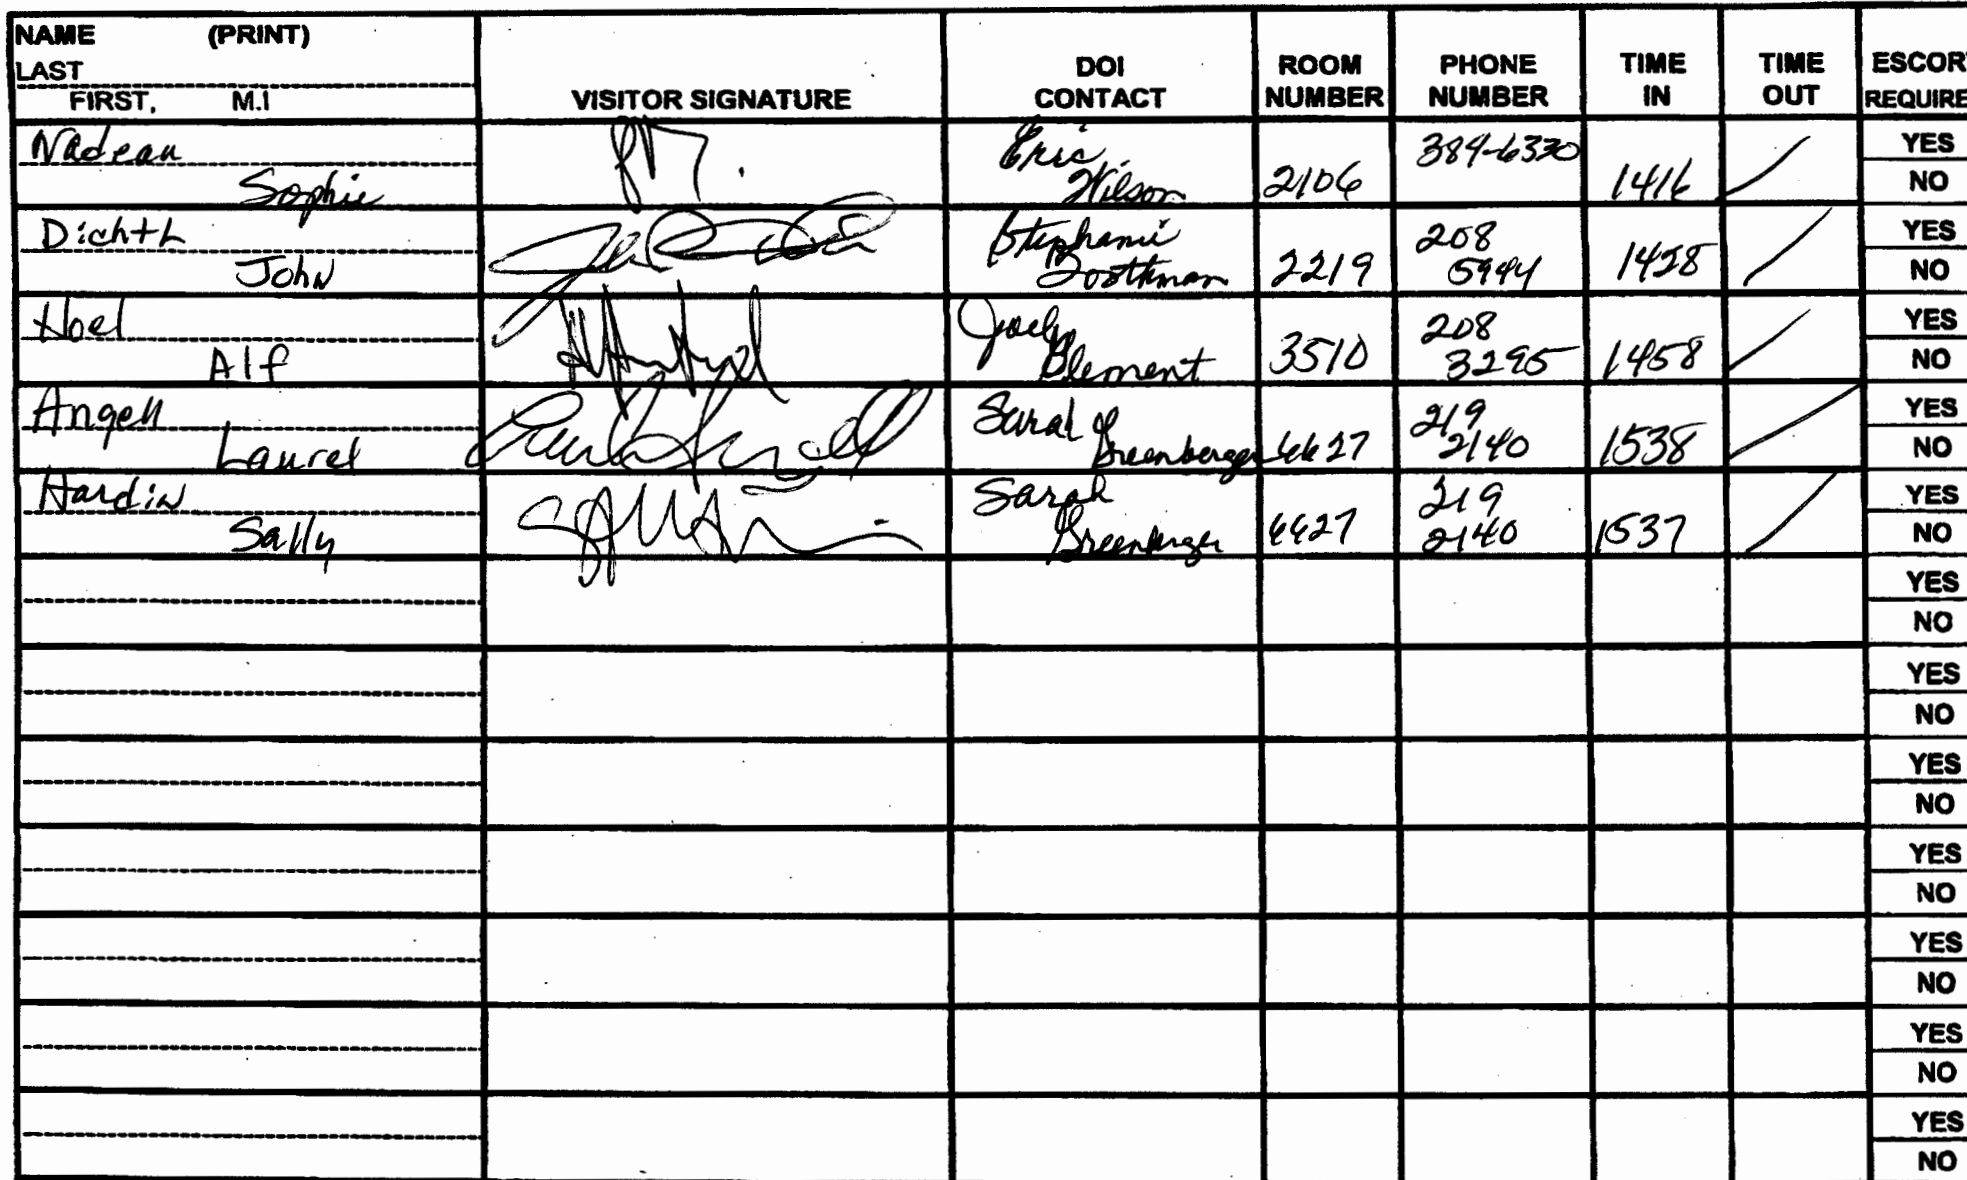 NAME (PRINT)
LAST
FIRST, M.I
VISITOR SIGNATURE
DOI
CONTACT
ROOM
NUMBER
PHONE
NUMBER
TIME
IN
TIME
OUT
ESCORT
REQUIRE
Nadeau
Sophie
Eric
Wilson
2106
384-6330
1416
YES
NO
Dichth
John
Stephanie
2219
208
5944
1428
YES
NO
Hoel
Alf
Joel
Clement
3510
208
3295
1458
YES
NO
Angell
Laurel
Sarah
Greenberger
6627
219
2140
1538
YES
NO
Hardin
Sally
Sarah
Greenberger
6627
219
2140
1537
YES
NO
YES
NO
YES
NO
YES
NO
YES
NO
YES
NO
YES
NO
YES
NO